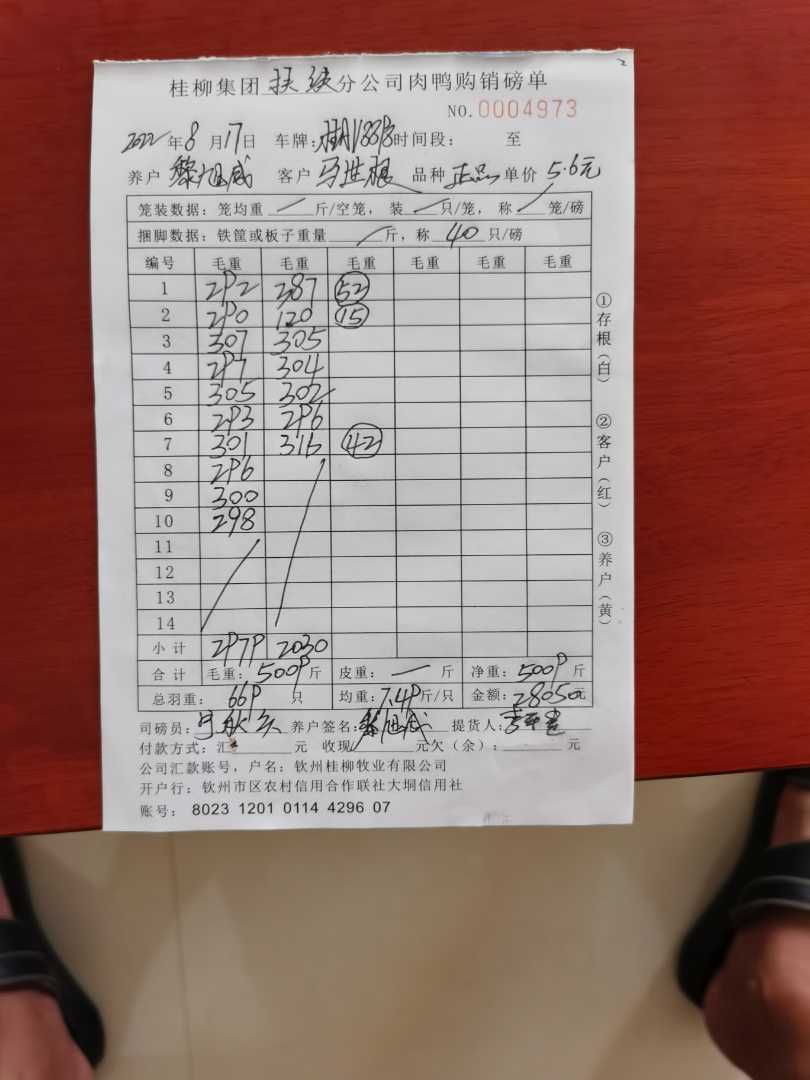 2
桂柳集团扶绥分公司肉鸭购销磅单
NO.0004973
2022年8月17日 车牌: 时间段: 至
养户 黎旭威 客户 马世根 品种 正品 单价 5.6元
笼装数据: 笼均重 / 斤/空笼, 装 / 只/笼, 称 / 笼/磅
捆脚数据: 铁筐或板子重量 / 斤, 称 40 只/磅
编号 毛重 毛重 毛重 毛重 毛重 毛重
1 292 287 52
2 290 120 15
3 307 305
4 297 304
5 305 302
6 293 296
7 301 316 42
8 296
9 300
10 298
11
12
13
14
小计 2979 2030
合计 毛重: 5009斤 皮重: 一 斤 净重: 5009斤
总羽重: 669 只 均重: 7.49斤/只 金额: 28050元
司磅员: 养户签名: 黎旭威 提货人:
付款方式: 汇 元 收现 元欠(余): 元
公司汇款账号, 户名: 钦州桂柳牧业有限公司
开户行: 钦州市区农村信用合作联社大垌信用社
账号: 8023 1201 0114 4296 07
①存根(白)
②客户(红)
③养户(黄)